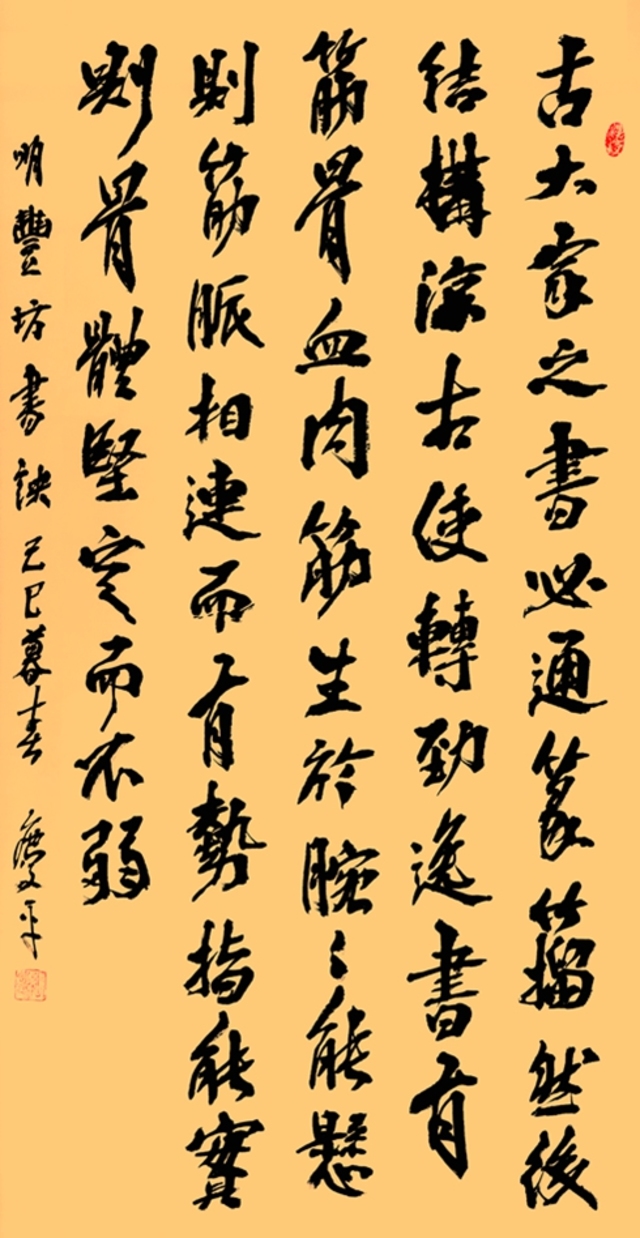 古大家之書必通篆籀然後
結構淳古使轉勁逸書有
筋骨血肉筋生於腕腕能懸
則筋脈相連而有勢指能實
則骨體堅定而不弱
明豐坊書訣己巳暮春 文平